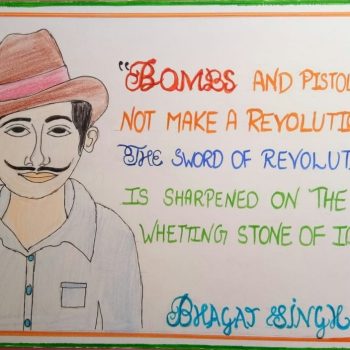 "BOMBS AND PISTOL
NOT MAKE A REVOLUTI
THE SWORD OF REVOLUT
IS SHARPENED ON THE
WHETTING STONE OF I
BHAGAT SINGH